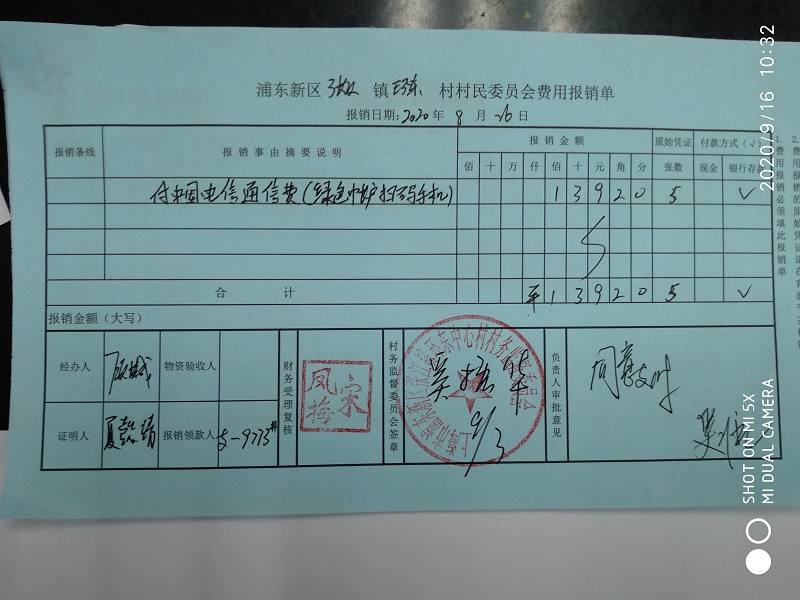 浦东新区 张江 镇 环东 村村民委员会费用报销单
报销日期: 2020 年 8 月 26 日
报销条线 报销事由摘要说明 报销金额 原始凭证 付款方式(√)
佰 十 万 仟 佰 十 元 角 分 张数 现金 银行存款
付中国电信通信费(绿色中炉扫码手机) 1 3 9 2 0 5 √
合 计 ¥ 1 3 9 2 0 5 √
报销金额(大写)
经办人 物资验收人 财务受理复核 村务监督委员会签章 负责人审批意见
证明人 报销领款人 支-9773#
宋凤梅
9/3
同意支付
1. 费用报销必须填此报销单
2020/9/16 10:32
SHOT ON MI 5X
MI DUAL CAMERA